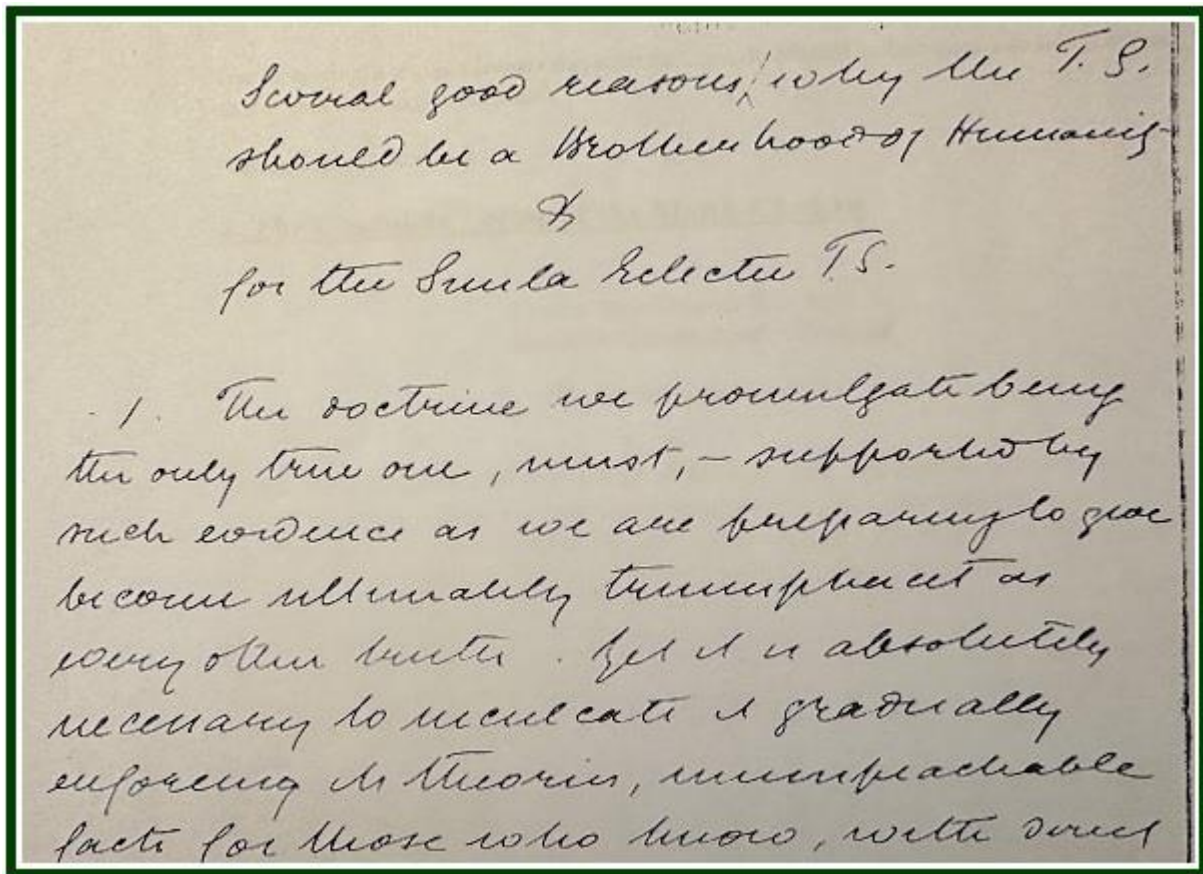 Several good reasons, why the T. S.
should be a Brotherhood of Humanity
&
for the Simla Eclectic T S.
1. The doctrine we promulgate being
the only true one, must, – supported by
such evidence as we are preparing to give
become ultimately triumphant as
every other truth. Yet it is absolutely
necessary to inculcate it gradually
enforcing its theories, unimpeachable
facts for those who know, with direct